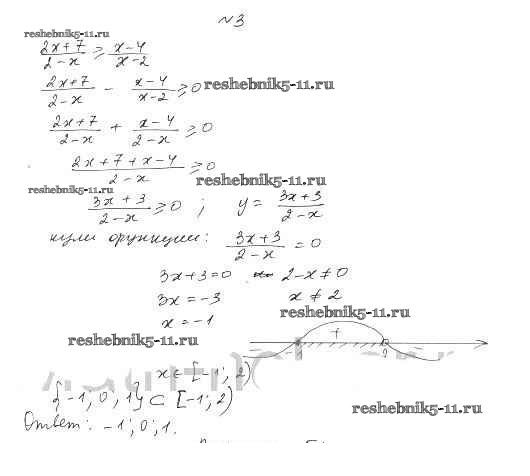 №3
reshebnik5-11.ru
(2x+7)/(2-x) ≥ (x-4)/(x-2)
(2x+7)/(2-x) - (x-4)/(x-2) ≥ 0 reshebnik5-11.ru
(2x+7)/(2-x) + (x-4)/(2-x) ≥ 0
(2x+7+x-4)/(2-x) ≥ 0
reshebnik5-11.ru
reshebnik5-11.ru
(3x+3)/(2-x) ≥ 0 ; y = (3x+3)/(2-x)
нули функции: (3x+3)/(2-x) = 0
3x+3=0 2-x≠0
3x=-3 x≠2
x=-1
reshebnik5-11.ru
reshebnik5-11.ru
+
-1 2
x∈[-1; 2)
{-1; 0; 1} ⊂ [-1; 2)
Ответ: -1; 0; 1.
reshebnik5-11.ru